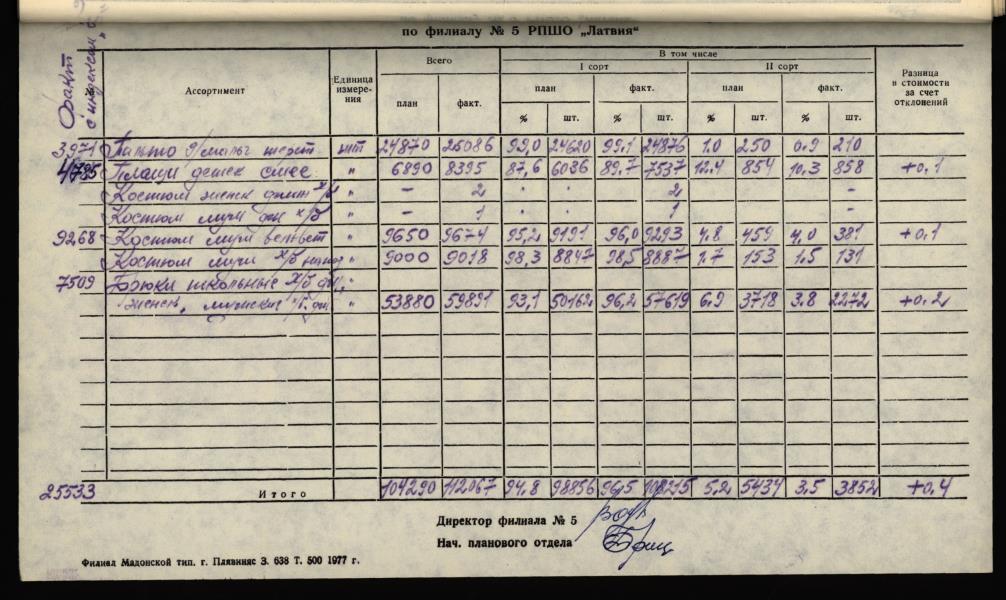 по филиалу № 5 РПШО „Латвия“
Факт
№ Ассортимент Единица измере-ния Всего В том числе Разница в стоимости за счет отклонений
I сорт II сорт
план факт. план факт. план факт.
% шт. % шт. % шт. % шт.
3971 Пальто д/мальч шерст. шт 24870 25086 99,0 24620 99,1 24876 1.0 250 0.9 210
4785 Плащи детск смес. " 6890 8395 87,6 6036 89.7 7537 12.4 854 10.3 858 +0,1
Костюм женск х/б " - 2 . . 2 -
Костюм муж х/б " - 1 . . 1 -
9268 Костюм муж вельвет " 9650 9674 95,2 9191 96,0 9293 4.8 459 4,0 381 +0,1
Костюм мужч х/б " 9000 9018 98,3 8847 98,5 8887 1.7 153 1.5 131
7509 Брюки школьные х/б "
женск, мужские " 53880 59891 93,1 50162 96,2 57619 6.9 3718 3.8 2272 +0,2
25533 Итого 104290 112067 94.8 98856 96,5 108215 5,2 5434 3.5 3852 +0,4
Директор филиала № 5
Нач. планового отдела
Филиал Мадонской тип. г. Плявиняс З. 638 Т. 500 1977 г.